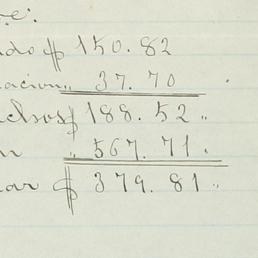 ndo $ 150.82
acion " 37.70
echos $ 188.52 "
n " 567.71 "
ar $ 379.81 "